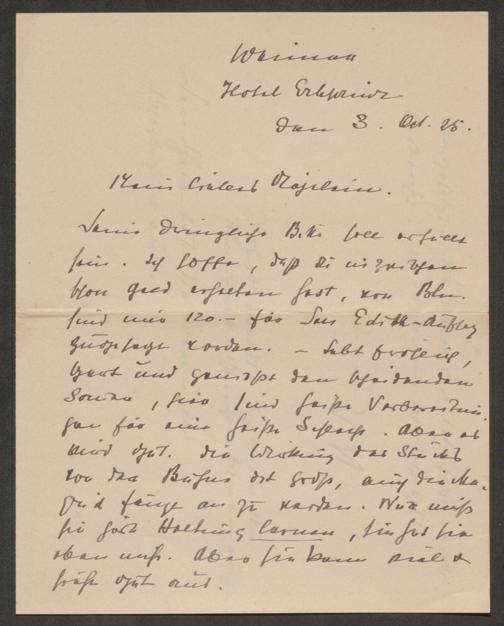 Weimar
Hotel Erbprinz
den 3. Oct. 25.
Mein liebes Röslein.
Deine dringliche Bitte soll erfüllt
sein. Ich hoffe, daß du inzwischen
schon Geld erhalten hast, von Bln.
sind mir 120.- für den Edith-Aufsatz
zugesagt worden. - Lebt fröhlich,
und genießt den scheidenden
Sommer, hier sind heiße Vorbereitun-
gen für eine heiße Schlacht. Aber es
wird gut. Die Wirkung des Stücks
von der Bühne ist groß, auch die
fängt an zu werden. Nur muß
sie Haltung lernen,
eben muß. Aber sie kann viel &
sieht gut aus.